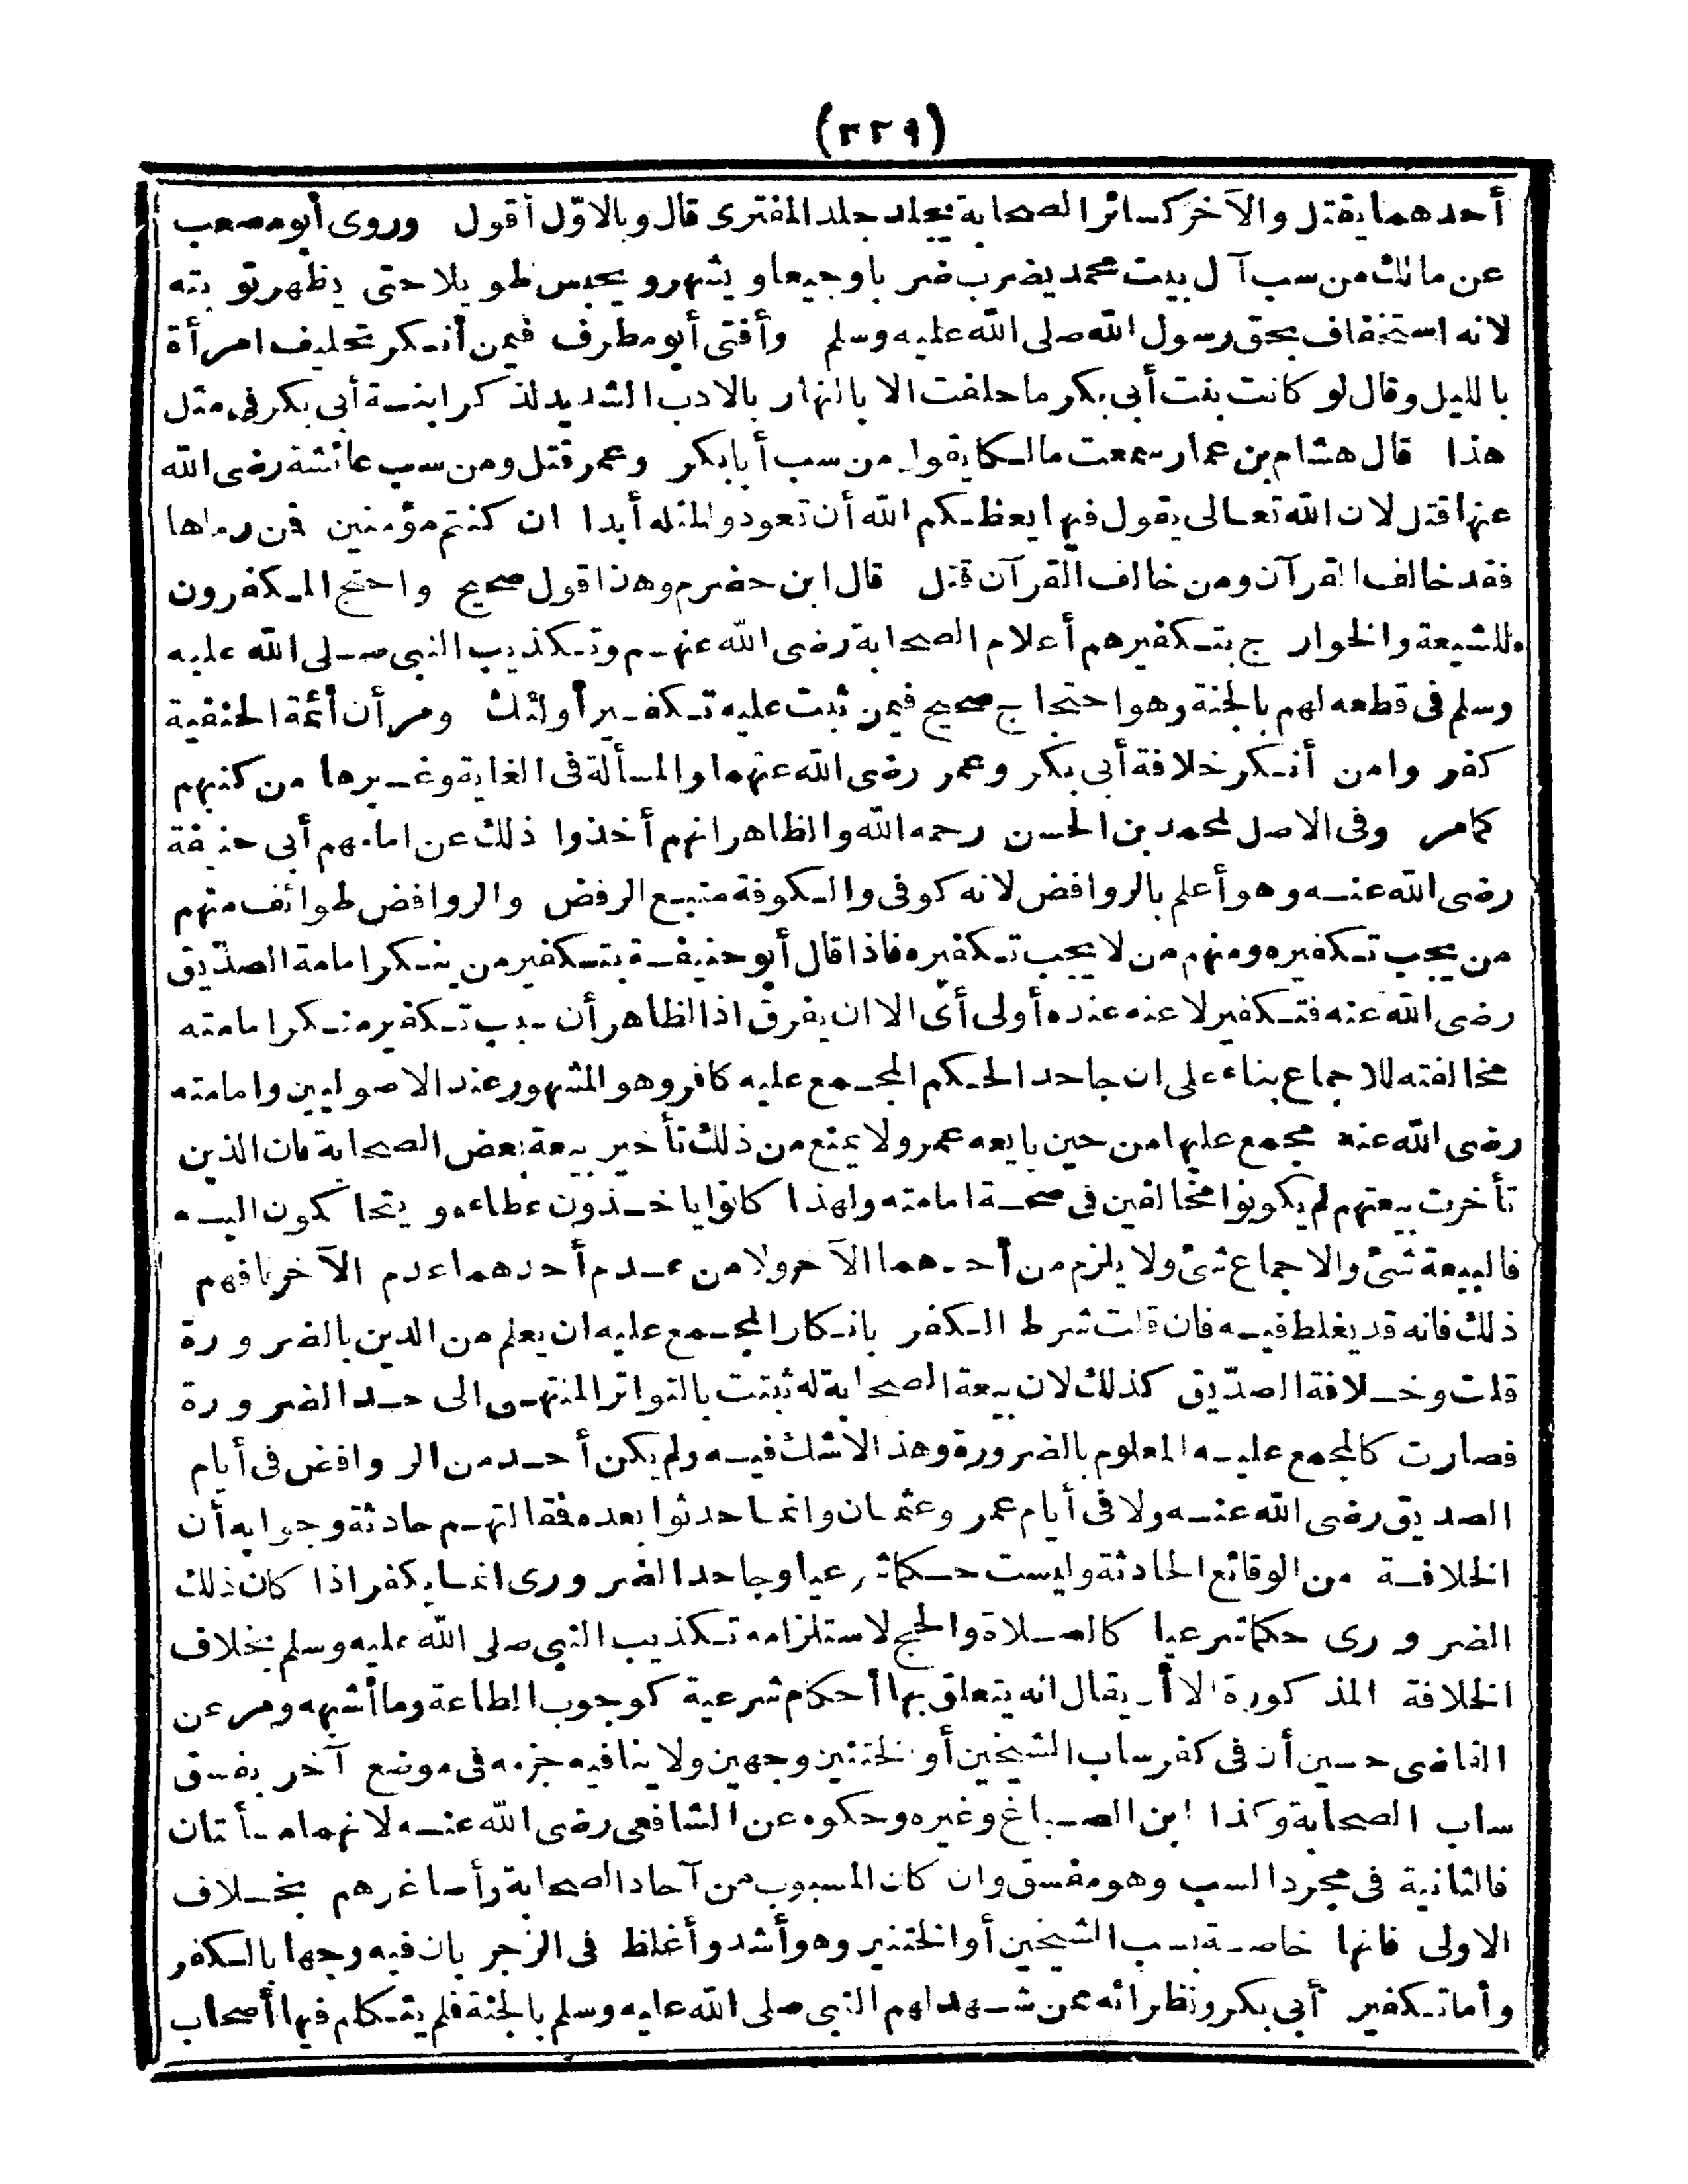 (٢٢٩)
أحدهما يقتل والآخر كسائر الصحابة يجلد جلد المفترى قال وبالاوّل أقول وروى أبو مصعب
عن مالك من سب آل بيت محمد يضرب ضرباً وجيعا ويشهر ويحبس طويلا حتى يظهر توبته
لانه استخفاف بحق رسول الله صلى الله عليه وسلم وأفتى أبو مطرف فيمن أنكر تحليف امرأة
بالليل وقال لو كانت بنت أبى بكر ما حلفت الا بالنهار بالادب الشديد لذكر ابنة أبى بكر فى مثل
هذا قال هشام بن عمار سمعت مالكا يقول من سب أبا بكر وعمر قتل ومن سب عائشة رضى الله
عنها قتل لان الله تعالى يقول فيها يعظكم الله أن تعودوا لمثله أبدا ان كنتم مؤمنين فمن رماها
فقد خالف القرآن ومن خالف القرآن قتل قال ابن حضرم وهذا قول صحيح واحتج المكفرون
للشيعة والخوارج بتكفيرهم أعلام الصحابة رضى الله عنهم وتكذيب النبى صلى الله عليه
وسلم فى قطعه لهم بالجنة وهو احتجاج صحيح فيمن ثبت عليه تكفير أولئك ومر أن أئمة الحنفية
كفروا من أنكر خلافة أبى بكر وعمر رضى الله عنهما والمسألة فى الغاية وغيرها من كتبهم
كما مر وفى الاصل لمحمد بن الحسن رحمه الله والظاهر انهم أخذوا ذلك عن امامهم أبى حنيفة
رضى الله عنه وهو أعلم بالروافض لانه كوفى والكوفة منبع الرفض والروافض طوائف منهم
من يجب تكفيره ومنهم من لا يجب تكفيره فاذا قال أبو حنيفة بتكفير من ينكر امامة الصدّيق
رضى الله عنه فتكفير لاعنه عنده أولى أى الا ان يفرق اذ الظاهر أن سبب تكفير منكر امامته
مخالفته للاجماع بناء على ان جاحد الحكم المجمع عليه كافر وهو المشهور عند الاصوليين وامامته
رضى الله عنه مجمع عليها من حين بايعه عمر ولا يمنع من ذلك تأخير بيعة بعض الصحابة فان الذين
تأخرت بيعتهم لم يكونوا مخالفين فى صحة امامته ولهذا كانوا ياخذون عطاءه ويتحاكمون اليه
فالبيعة شئ والاجماع شئ ولا يلزم من أحدهما الآخر ولا من عدم أحدهما عدم الآخر فافهم
ذلك فانه قد يغلط فيه فان قلت شرط الكفر بانكار المجمع عليه ان يعلم من الدين بالضرورة
قلت وخلافة الصدّيق كذلك لان بيعة الصحابة له ثبتت بالتواتر المنتهى الى حد الضرورة
فصارت كالمجمع عليه المعلوم بالضرورة وهذا لاشك فيه ولم يكن أحد من الروافض فى أيام
الصديق رضى الله عنه ولا فى أيام عمر وعثمان وانما حدثوا بعده فمقالتهم حادثة وجوابه أن
الخلافة من الوقائع الحادثة وليست حكما شرعيا وجاحد الضرورى انما يكفر اذا كان ذلك
الضرورى حكما شرعيا كالصلاة والحج لاستلزامه تكذيب النبى صلى الله عليه وسلم بخلاف
الخلافة المذكورة الا أن يقال انه يتعلق بها أحكام شرعية كوجوب الطاعة وما أشبهه ومر عن
القاضى حسين أن فى كفر ساب الشيخين أو الختنين وجهين ولا ينافيه جزمه فى موضع آخر بفسق
ساب الصحابة وكذا ابن الصباغ وغيره وحكوه عن الشافعى رضى الله عنه لانهما مسألتان
فالثانية فى مجرد السب وهو مفسق وان كان المسبوب من آحاد الصحابة وأصاغرهم بخلاف
الاولى فانها خاصة بسب الشيخين أو الختنين وهو أشد وأغلظ فى الزجر بان فيه وجها بالكفر
وأما تكفير أبى بكر ونظرائه ممن شهد لهم النبى صلى الله عليه وسلم بالجنة فلم يتكلم فيها أصحاب